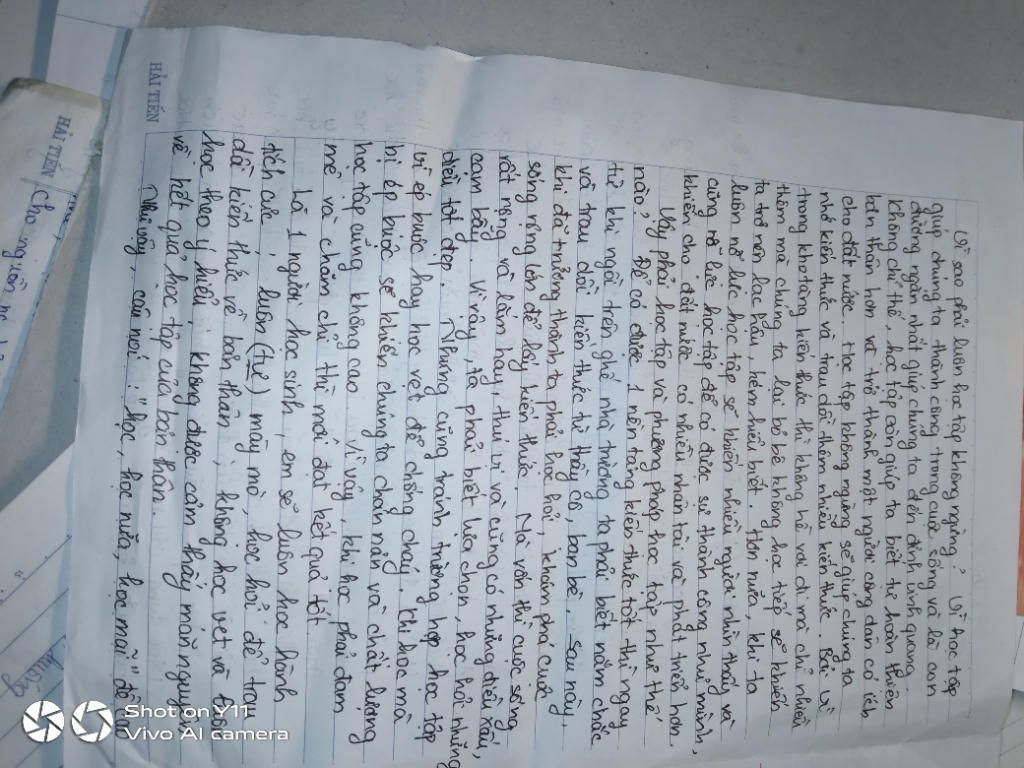 Vì sao phải luôn học tập không ngừng? Vì học tập
giúp chúng ta thành công trong cuộc sống và là con
đường ngắn nhất giúp chúng ta đến đỉnh vinh quang.
Không chỉ thế, học tập còn giúp ta biết tự hoàn thiện
bản thân hơn và trở thành một người công dân có ích
cho đất nước. Học tập không ngừng sẽ giúp chúng ta
nhớ kiến thức và trau dồi thêm nhiều kiến thức. Bởi vì
trong kho tàng kiến thức thì không hề vơi đi mà chỉ nhiều
thêm mà chúng ta lại bỏ bê không học tiếp sẽ khiến
ta trở nên lạc hậu, kém hiểu biết. Hơn nữa, khi ta
luôn nỗ lực học tập sẽ khiến nhiều người nhìn thấy và
cũng nỗ lực học tập để có được sự thành công như mình,
khiến cho đất nước có nhiều nhân tài và phát triển hơn.
Vậy phải học tập và phương pháp học tập như thế
nào? Để có được 1 nền tảng kiến thức tốt thì ngay
từ khi ngồi trên ghế nhà trường ta phải biết nắm chắc
và trau dồi kiến thức từ thầy cô, bạn bè. Sau này,
khi đã trưởng thành ta phải học hỏi, khám phá cuộc
sống rộng lớn để lấy kiến thức. Mà vốn thì cuộc sống
rất rộng và lắm hay, thú vị và cũng có những điều xấu,
cạm bẫy. Vì vậy, ta phải biết lựa chọn, học hỏi những
điều tốt đẹp. Nhưng cũng tránh trường hợp học tập
vì ép buộc hay học vẹt để chống cháy. Khi học mà
bị ép buộc sẽ khiến chúng ta chán nản và chất lượng
học tập cũng không cao. Vì vậy, khi học phải đam
mê và chăm chỉ thì mới đạt kết quả tốt
Là 1 người học sinh, em sẽ luôn học hành
tích cực, luôn (tự) mày mò, học hỏi để trau
dồi kiến thức về bản thân, không học vẹt và
học theo ý hiểu, không được cảm thấy mãn nguyện
về kết quả học tập của bản thân.
Như vậy, câu nói: "học, học nữa, học mãi" đã cho
HẢI TIẾN
HẢI TIẾN
Shot on Y11
Vivo AI camera